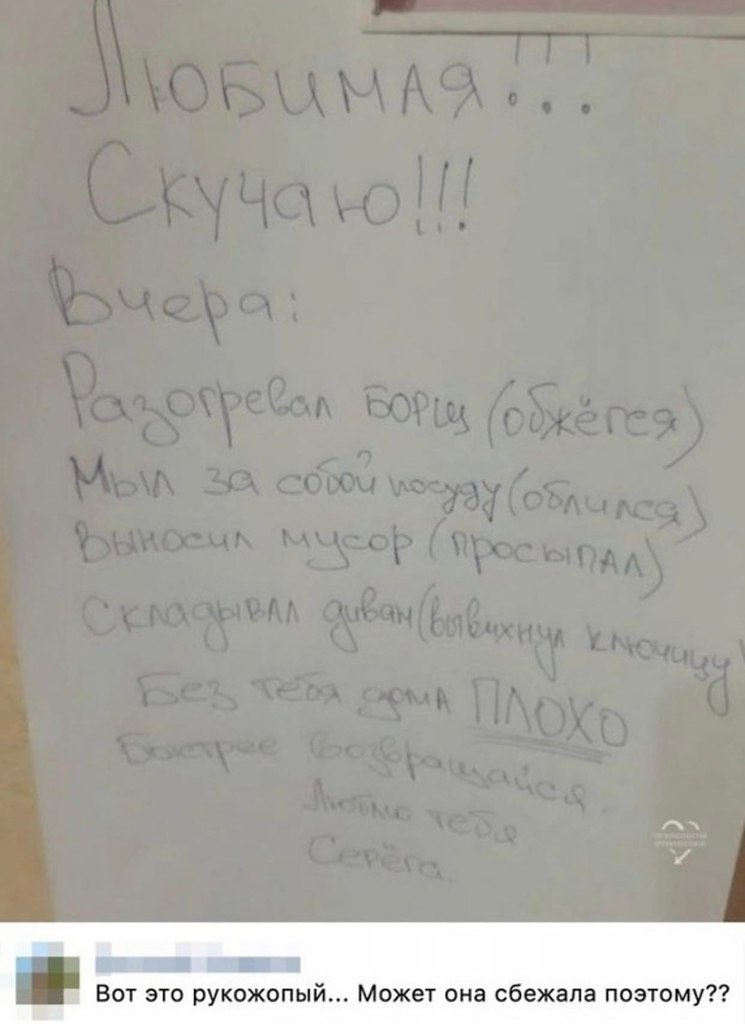 Любимая!!!
Скучаю!!!
Вчера:
Разогревал борщ (обжёгся)
Мыл за собой посуду (облился)
Выносил мусор (просыпал)
Складывал диван (вывихнул ключицу)
Без тебя дома ПЛОХО
Быстрее возвращайся.
Люблю тебя
Серёга.
Вот это рукожопый... Может она сбежала поэтому??